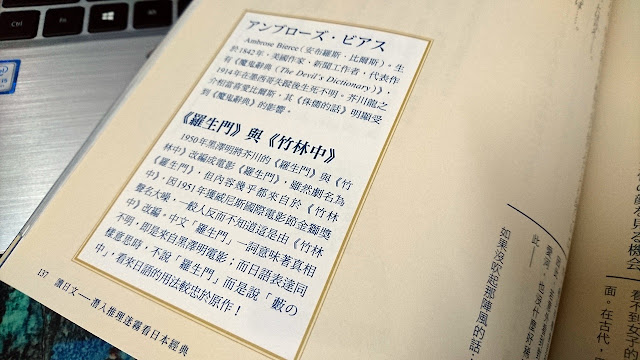 Ctrl
Fn
Alt
アンブローズ・ビアス
Ambrose Bierce（安布羅斯・比爾斯）。生
於1842年。美國作家、新聞工作者，代表作
有《魔鬼辭典（The Devil's Dictionary）》，
1914年在墨西哥失蹤後生死不明。芥川龍之
介相當喜愛比爾斯，其《侏儒的話》明顯受
到《魔鬼辭典》的影響。
《羅生門》與《竹林中》
1950年黑澤明將芥川的《羅生門》與《竹
林中》改編成電影《羅生門》，雖然劇名為
《羅生門》，但內容幾乎都來自於《竹林
中》。因1951年獲威尼斯國際電影節金獅獎
聲名大噪，一般人反而不知道這是由《竹林
中》改編。中文「羅生門」一詞意味著真相
不明，即是來自黑澤明電影；而日語表達同
樣意思時，不說「羅生門」而是說「藪の
中」，看來日語的用法較忠於原作！
137 讀日文——潛入推理迷霧看日本經典
面。在古代，
此——
如果沒吹起那陣風的話，